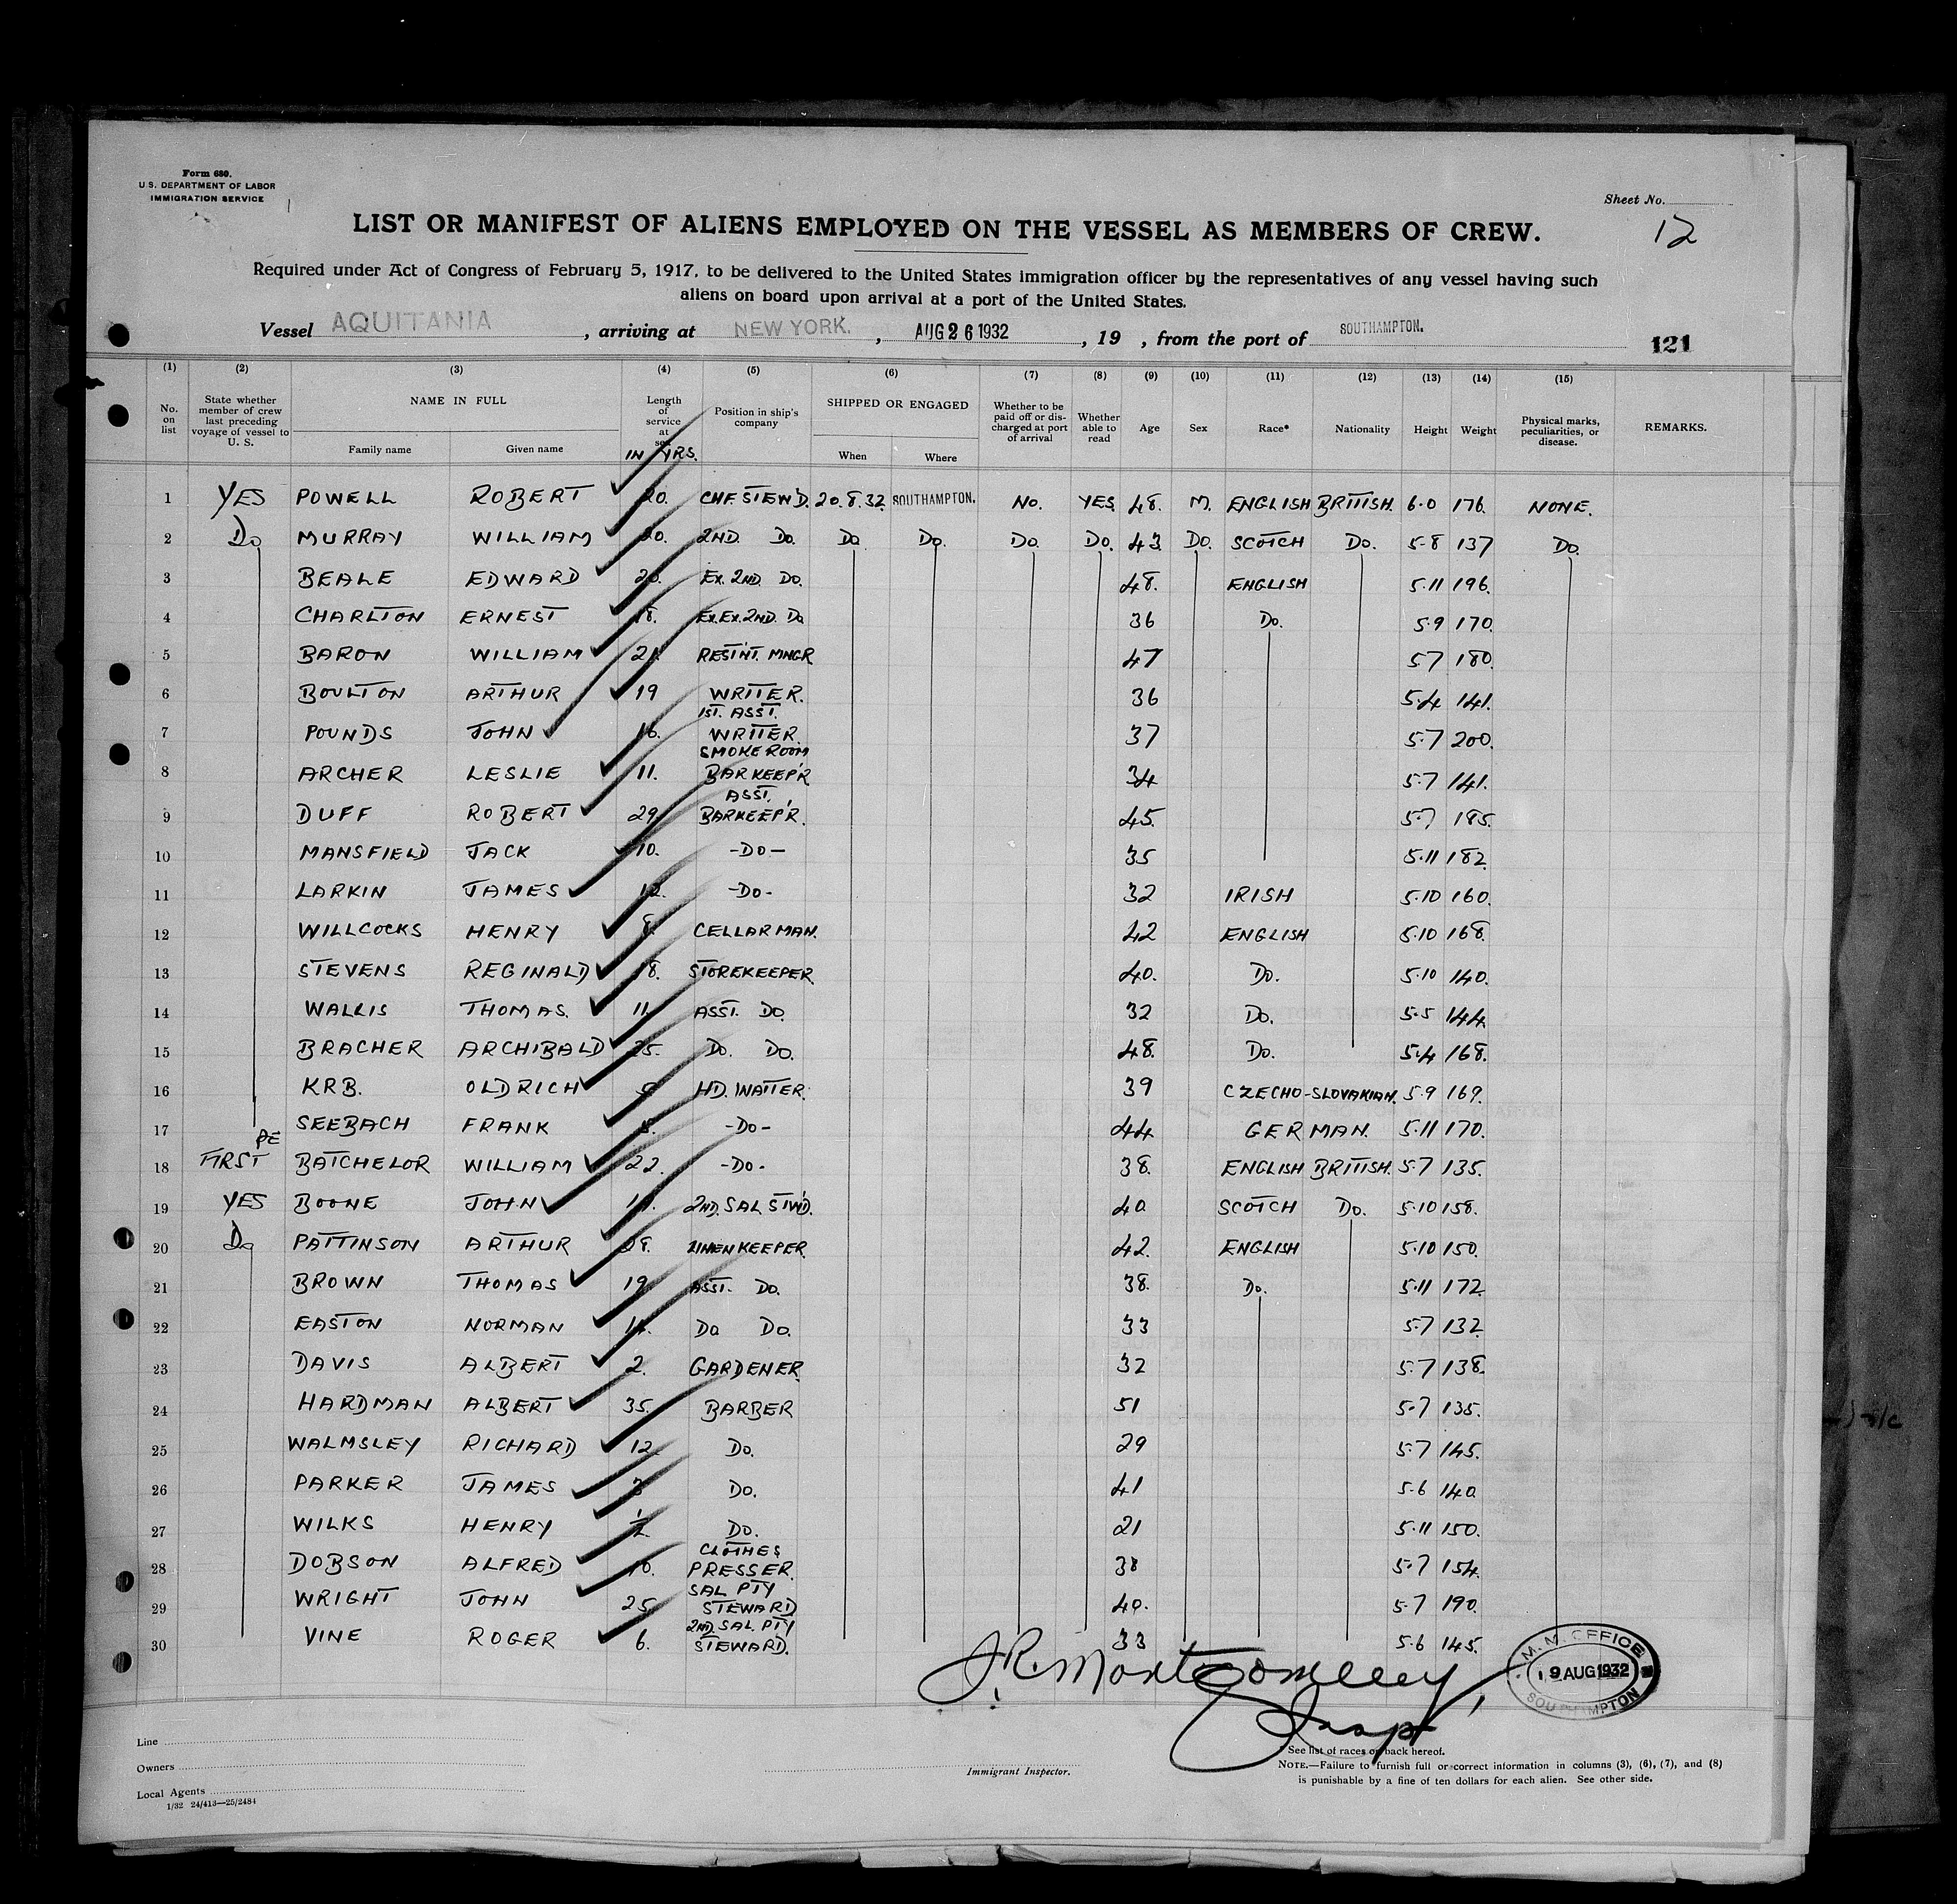 Form 680.
U.S. DEPARTMENT OF LABOR
IMMIGRATION SERVICE
Sheet No.
12
LIST OR MANIFEST OF ALIENS EMPLOYED ON THE VESSEL AS MEMBERS OF CREW.
Required under Act of Congress of February 5, 1917, to be delivered to the United States immigration officer by the representatives of any vessel having such
aliens on board upon arrival at a port of the United States.
Vessel AQUITANIA, arriving at NEW YORK., AUG 26 1932, 19 , from the port of SOUTHAMPTON.
121
(1) (2) (3) (4) (5) (6) (7) (8) (9) (10) (11) (12) (13) (14) (15)
No. on list State whether member of crew last preceding voyage of vessel to U. S. NAME IN FULL Family name Given name Length of service at sea IN YRS. Position in ship's company SHIPPED OR ENGAGED When Where Whether to be paid off or discharged at port of arrival Whether able to read Age Sex Race* Nationality Height Weight Physical marks, peculiarities, or disease. REMARKS.
1 YES POWELL ROBERT 20. CHF. STEW'D. 20.8.32 SOUTHAMPTON. NO. YES 48. M. ENGLISH BRITISH. 6-0 176. NONE.
2 Do MURRAY WILLIAM 20. 2ND. DO. DO DO. DO. DO. 43 DO. SCOTCH DO. 5-8 137 DO.
3 BEALE EDWARD EX. 2ND. DO. 48. ENGLISH 5.11 196.
4 CHARLTON ERNEST 18. EX.EX.2ND. DO 36 DO. 5.9 170.
5 BARON WILLIAM 21. REST'NT. MNGR 47 5.7 180.
6 BOULTON ARTHUR 19 WRITER. 36 5.4 141.
7 POUNDS JOHN 16. 1ST. ASST. WRITER. 37 5.7 200.
8 ARCHER LESLIE 11. SMOKE ROOM BARKEEP'R 34 5.7 141.
9 DUFF ROBERT 29 ASST. BARKEEP'R. 45. 5.7 185.
10 MANSFIELD JACK 10. -DO- 35 5.11 182
11 LARKIN JAMES 12. -DO- 32 IRISH 5.10 160.
12 WILLCOCKS HENRY 8. CELLARMAN. 42 ENGLISH 5.10 168.
13 STEVENS REGINALD 18. STOREKEEPER 40. DO. 5.10 140.
14 WALLIS THOMAS. 11. ASST. DO. 32 DO. 5.5 144.
15 BRACHER ARCHIBALD 25. DO. DO. 48. DO. 5.4 168.
16 KRB. OLDRICH HD. WAITER. 39 CZECHO-SLOVAKIAN. 5.9 169.
17 SEEBACH FRANK -DO- 44 GERMAN. 5.11 170.
18 FIRST BATCHELOR WILLIAM 22. -DO- 38. ENGLISH BRITISH. 5.7 135.
19 YES BOONE JOHN 2ND. SAL STW'D. 40. SCOTCH DO. 5.10 158.
20 Do PATTINSON ARTHUR LINEN KEEPER 42. ENGLISH 5.10 150.
21 BROWN THOMAS 19 ASST. DO. 38. DO. 5.11 172.
22 EASTON NORMAN 14. DO DO. 33 5.7 132
23 DAVIS ALBERT 2. GARDENER. 32 5.7 138.
24 HARDMAN ALBERT 35. BARBER 51 5.7 135.
25 WALMSLEY RICHARD 12. DO. 29 5.7 145.
26 PARKER JAMES 3 DO. 41 5.6 140.
27 WILKS HENRY 1/2 DO. 21 5.11 150.
28 DOBSON ALFRED 10. CLOTHES PRESSER. 38 5.7 154.
29 WRIGHT JOHN 25. SAL PTY STEWARD 40. 5.7 190.
30 VINE ROGER 6. 2ND. SAL. PTY STEWARD. 33 5.6 145.
J.R. Montgomery,
M. M. OFFICE
19 AUG 1932
SOUTHAMPTON
Line
Owners
Local Agents
1/32 24/413—25/2484
Immigrant Inspector.
* See list of races on back hereof.
NOTE.—Failure to furnish full or correct information in columns (3), (6), (7), and (8)
is punishable by a fine of ten dollars for each alien. See other side.